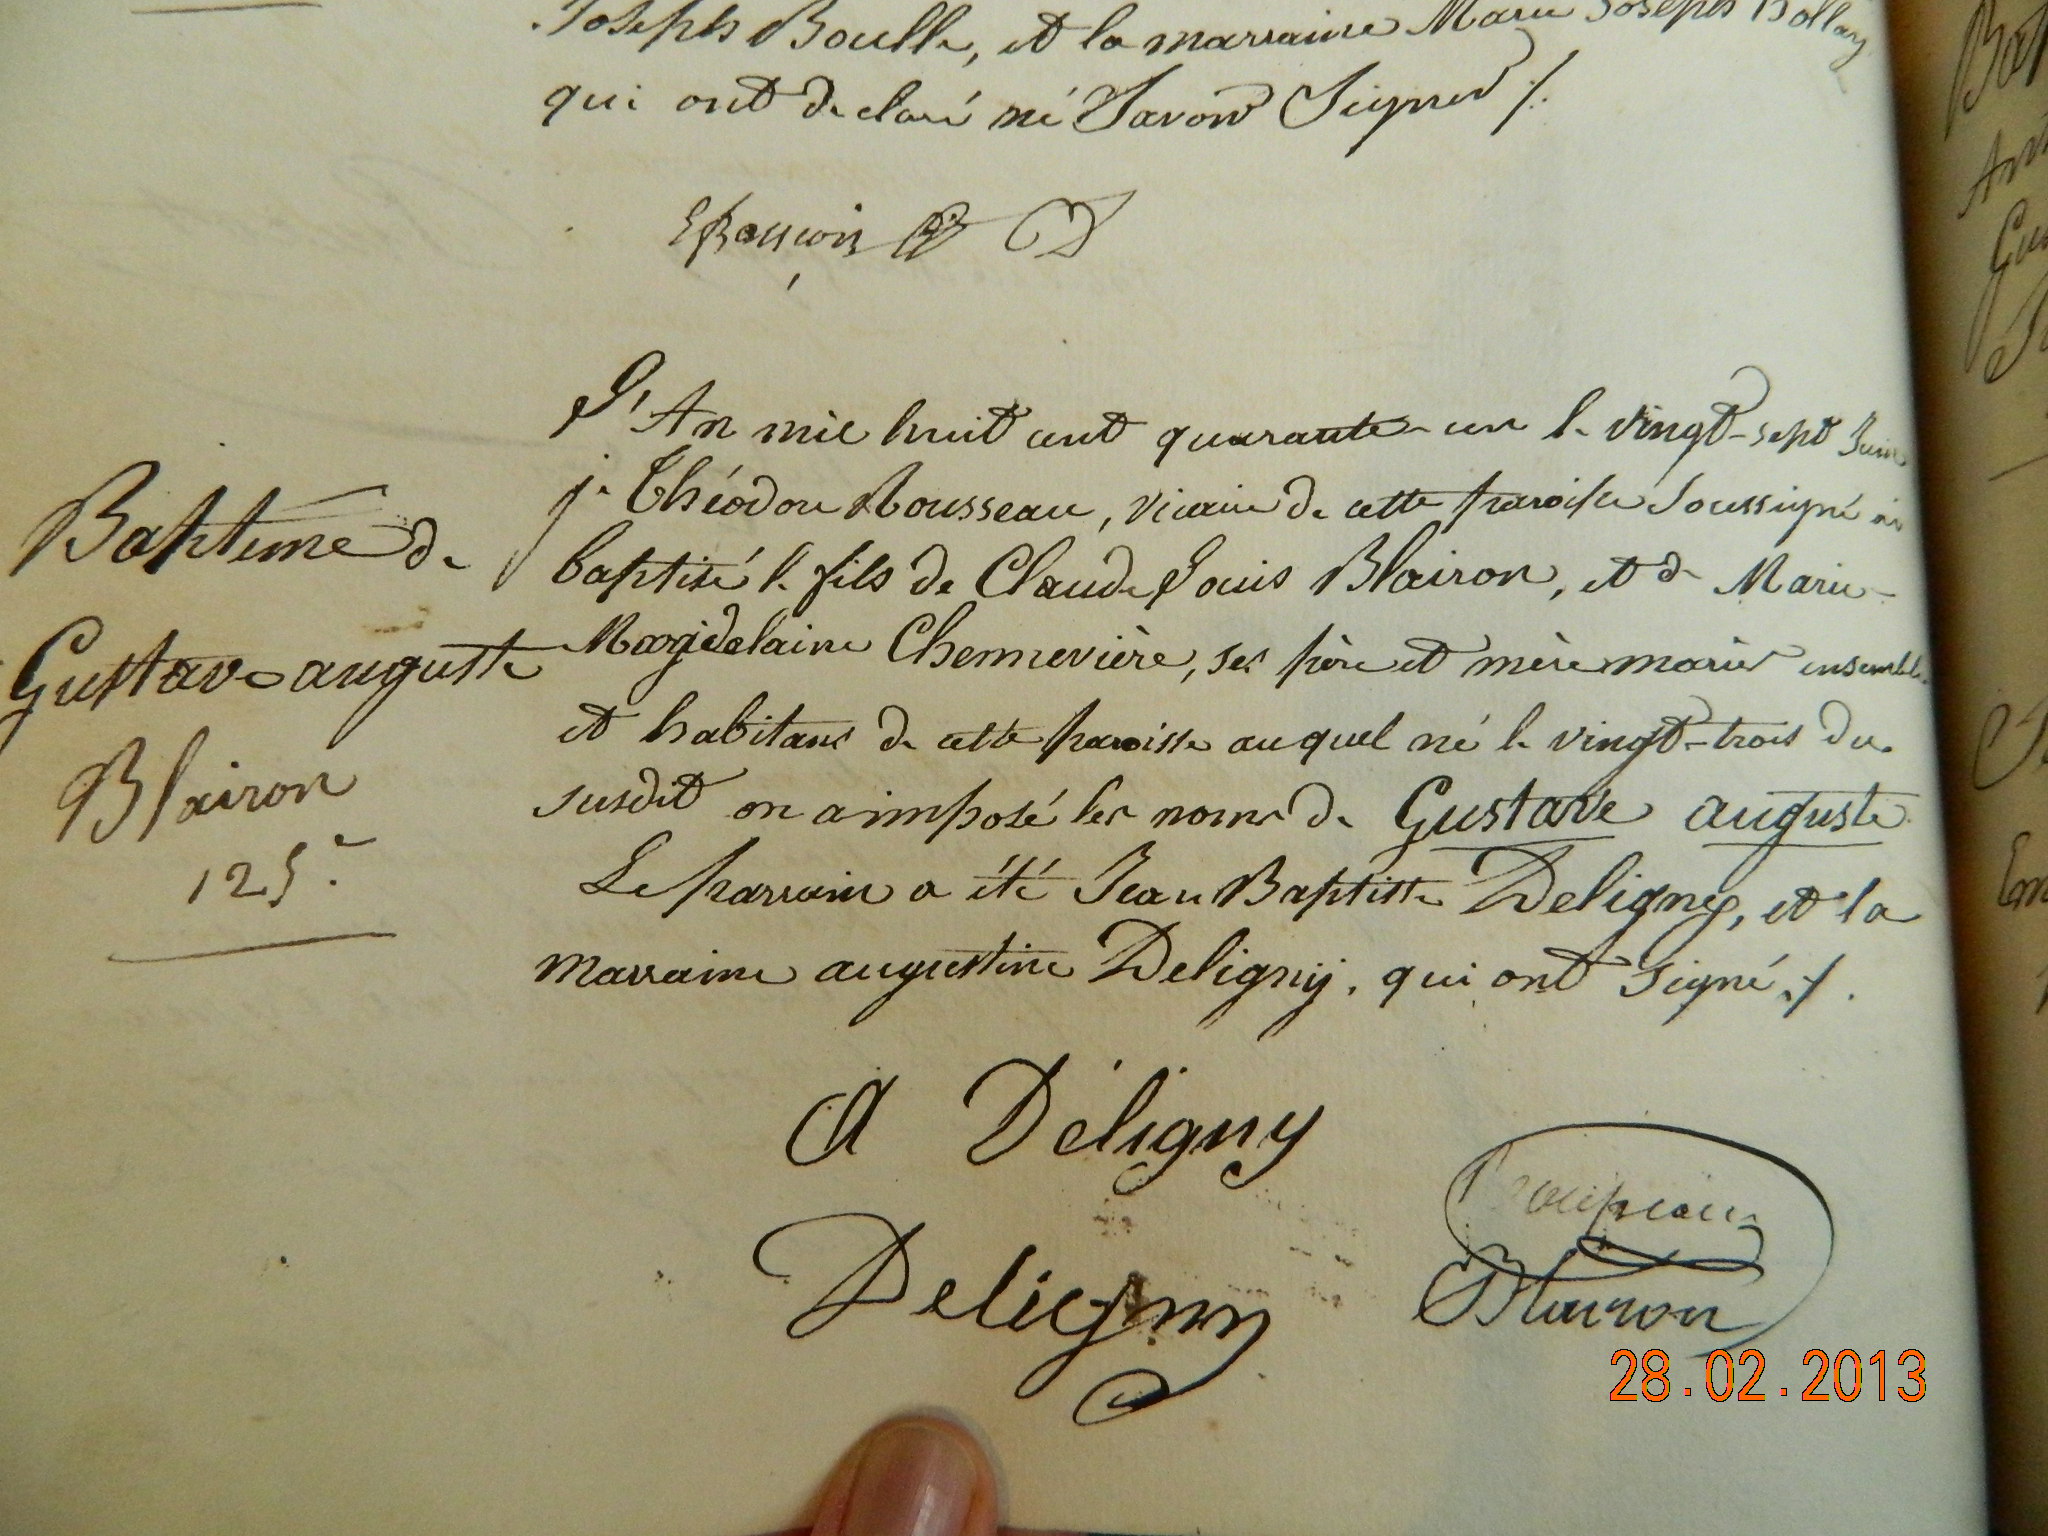 Joseph Boulle, et la marraine Marie Joseph Bollay
qui ont declaré né Savoir Signer ./.
L'An mil huit cent quarante-un le vingt-sept Juin
je Théodore Rousseau, vicaire de cette paroisse Soussigné ai
baptisé le fils de Claude Louis Blairon, et de Marie-
Magdelaine Chennevière, ses père et mère mariés ensemble
et habitans de cette paroisse auquel né le vingt-trois du
susdit on a imposé les noms de Gustave auguste
Le parrain a été Jean Baptiste Deligny, et la
marraine augustine Deligny, qui ont signé ./.
Baptême de
Gustave auguste
Blairon
125e
A Déligny
Deligny
Blairon
28.02.2013